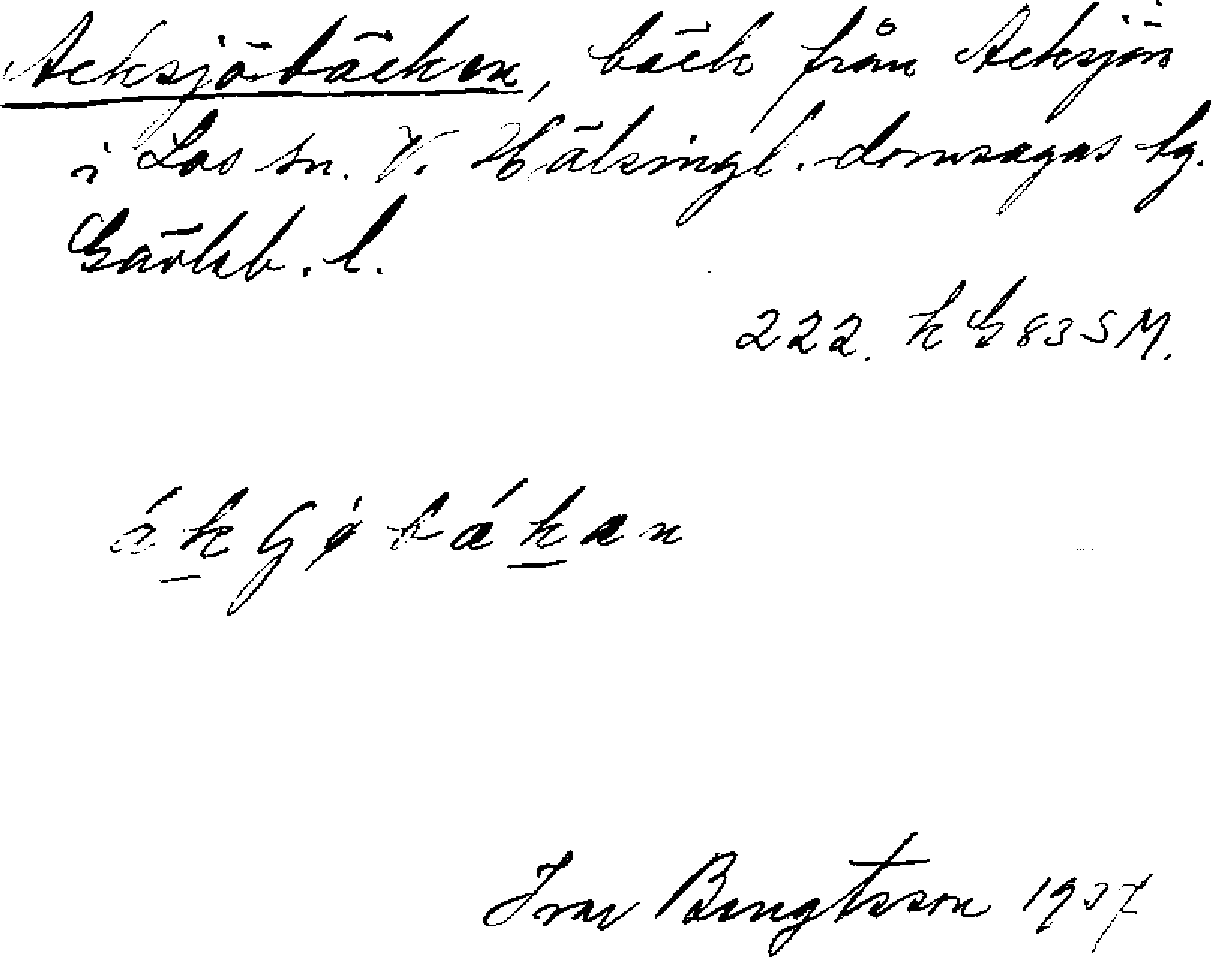 Acksjöbäcken, bäck från Acksjön
i Los sn. V. Hälsingl. domsagas tg.
Gävleb. l.
222. k G 83 SM.
Ivar Bengtsson 1937